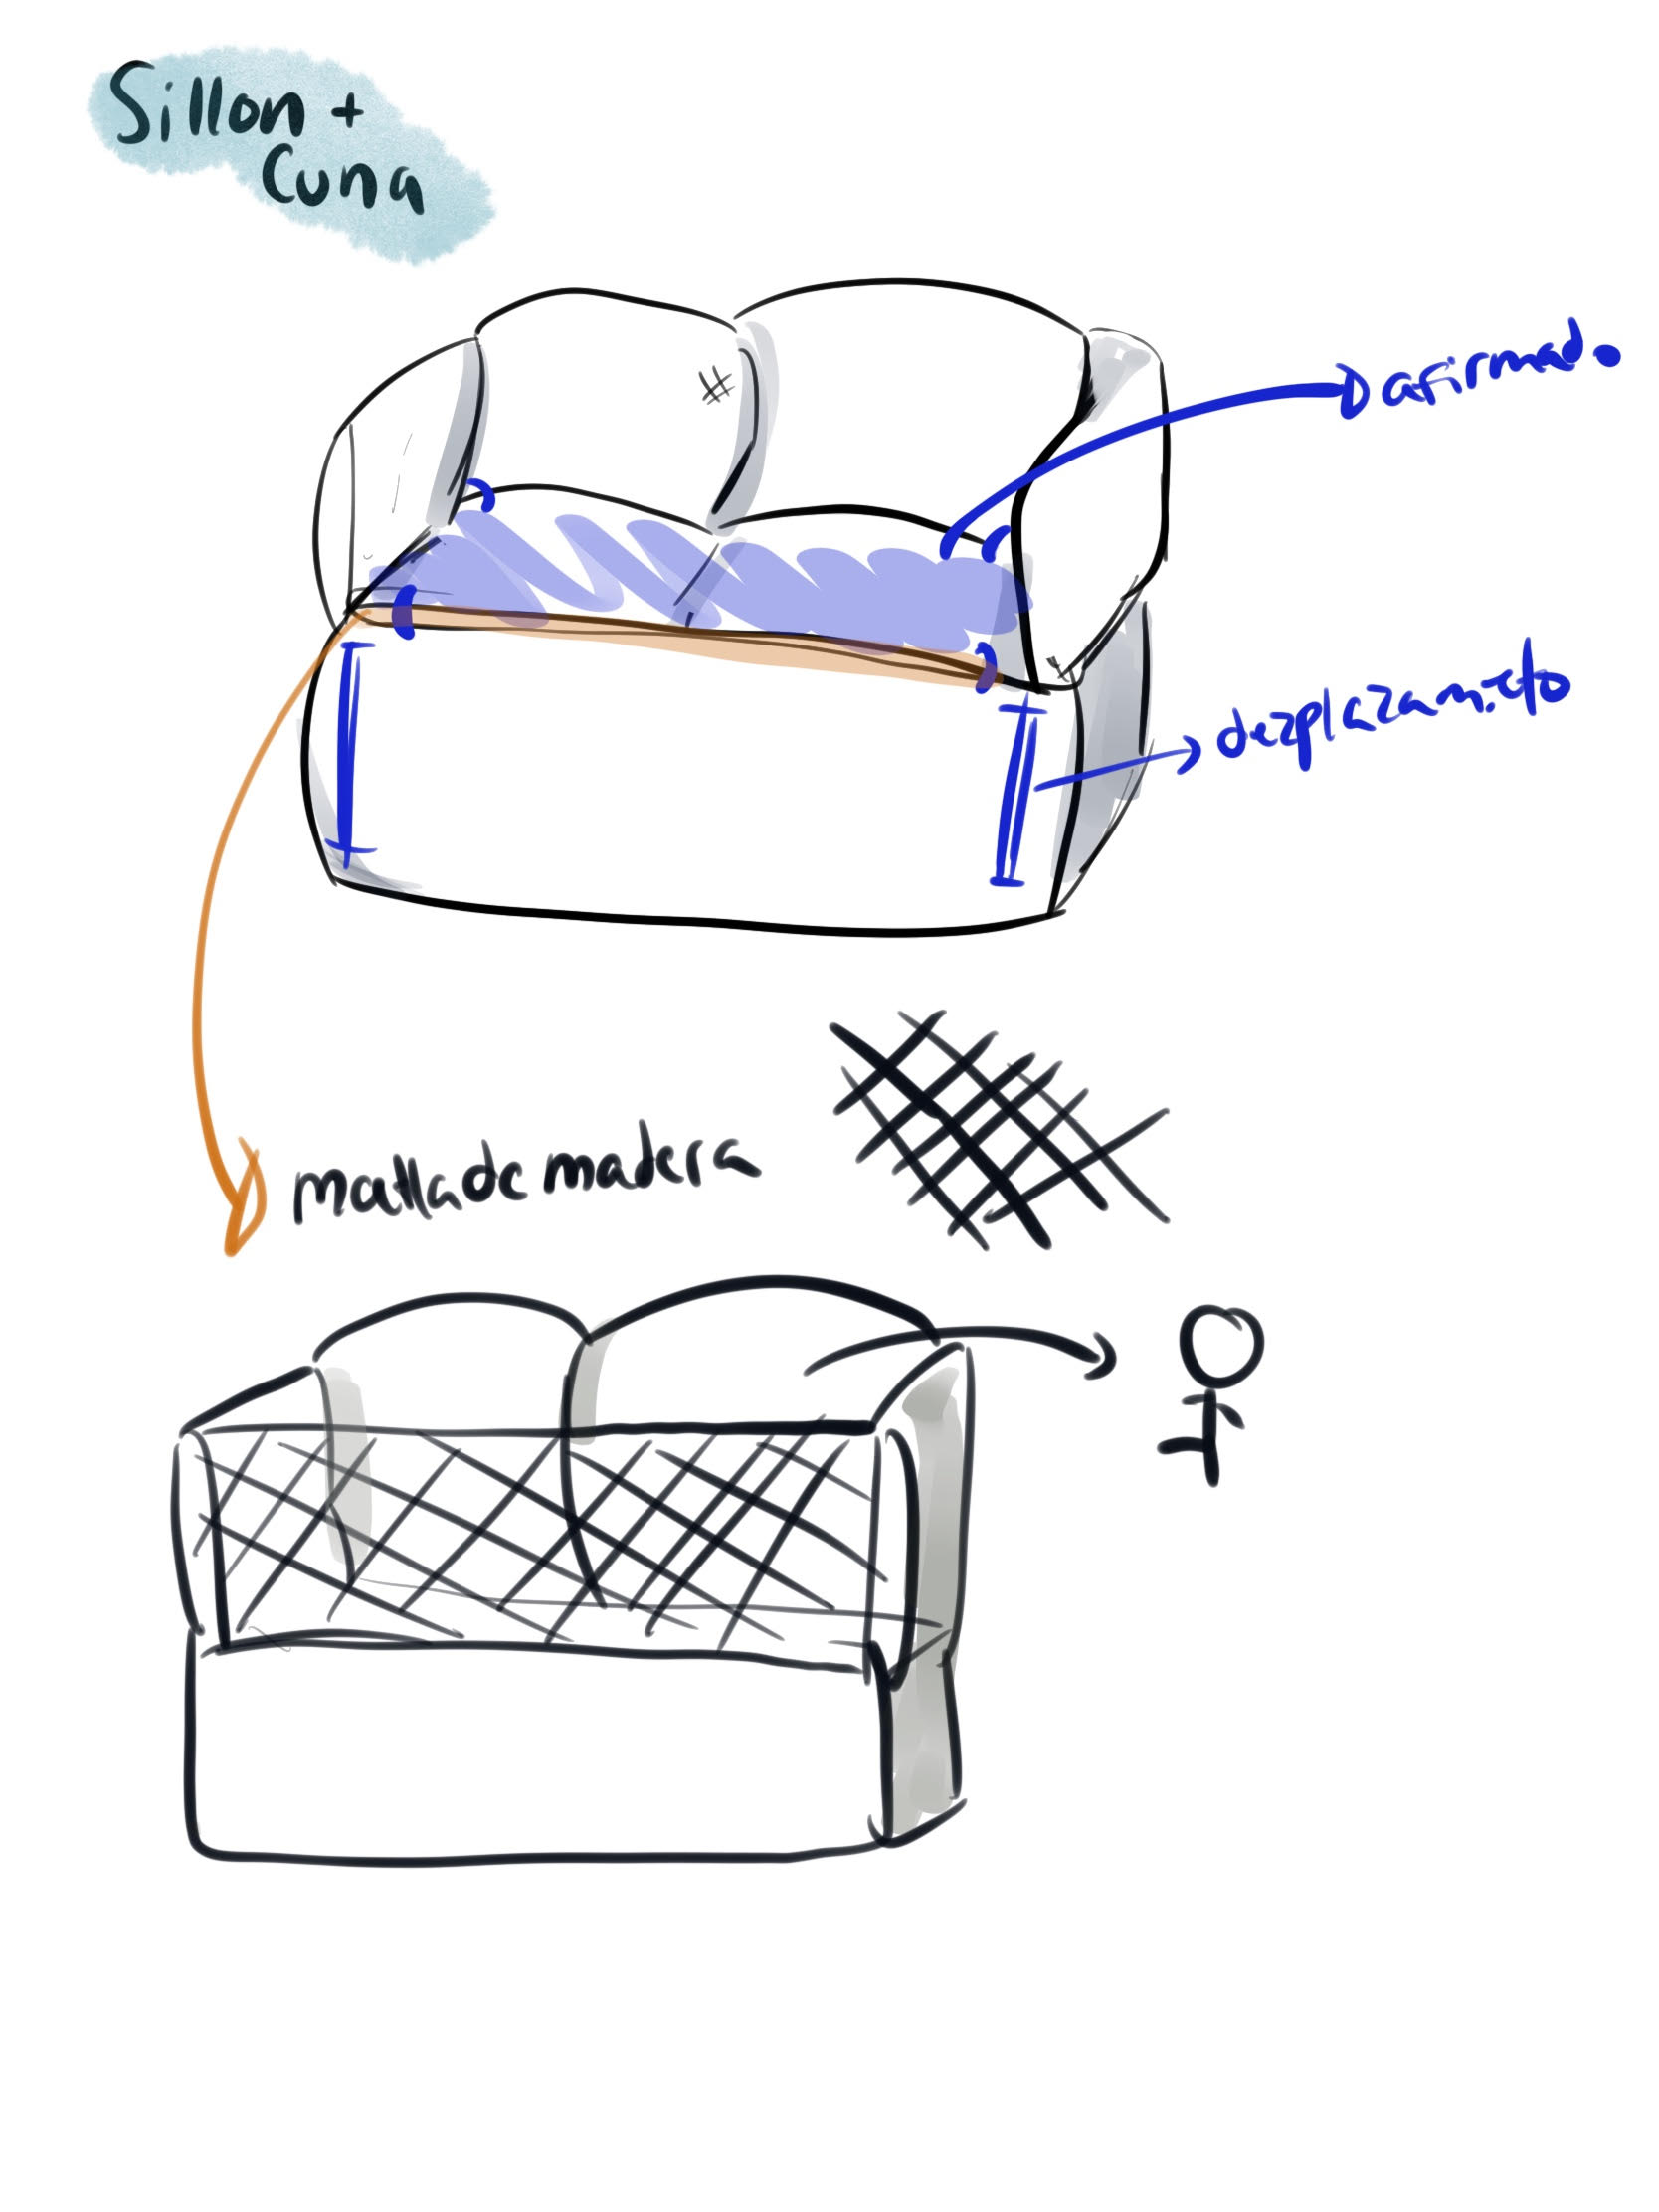 Sillon +
Cuna
afirmado
dezplazam.eto
malla de madera